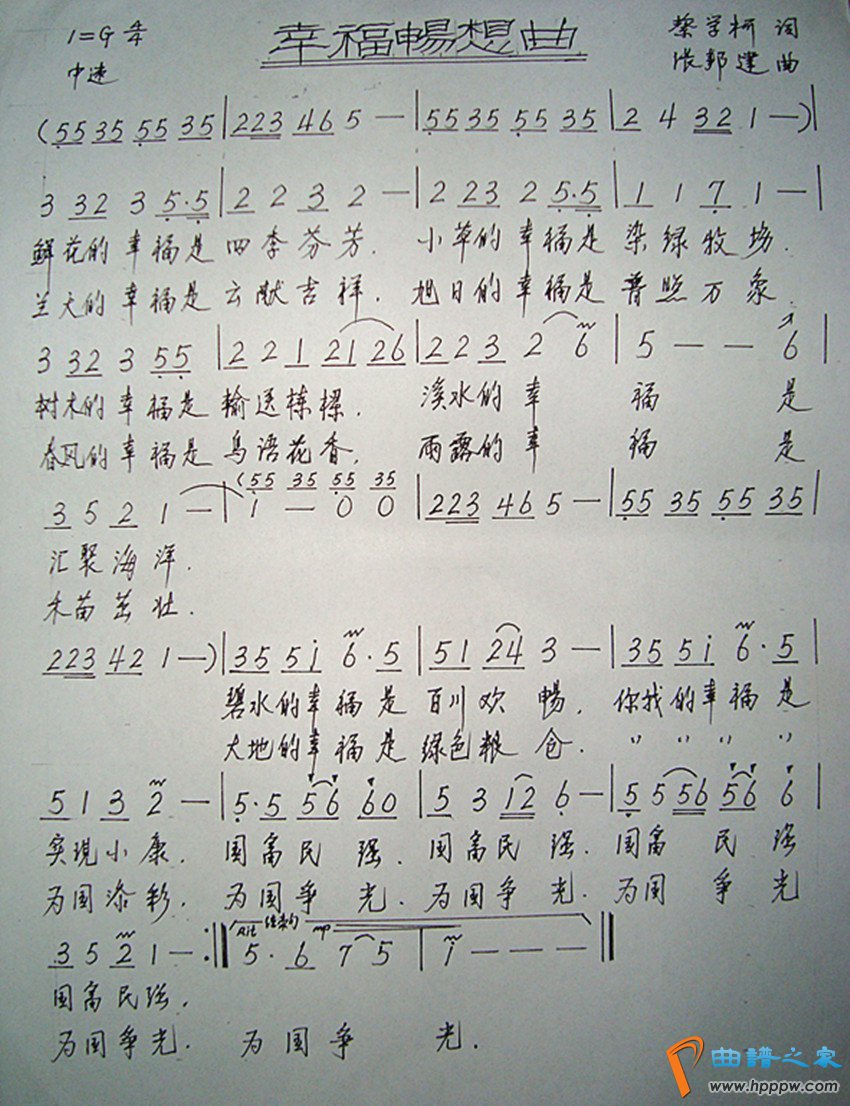 幸福畅想曲
1=G 4/4
中速
黎学柯 词
张邦建 曲
(55 35 55 35 | 223 46 5 — | 55 35 55 35 | 2 4 32 1 —) |
3 32 3 5·5 | 2 2 3 2 — | 2 23 2 5·5 | 1 1 7 1 — |
鲜花的幸福是四季芬芳. 小草的幸福是染绿牧场.
兰天的幸福是云献吉祥. 旭日的幸福是普照万象.
3 32 3 55 | 2 2 1 21 26 | 2 2 3 2 6 | 5 — — 6 |
树木的幸福是输送栋樑. 溪水的幸福是
春风的幸福是鸟语花香, 雨露的幸福是
(55 35 55 35
3 5 2 1 — | 1 — 0 0 | 223 46 5 — | 55 35 55 35 |
汇聚海洋.
禾苗茁壮.
223 42 1 —) | 35 5i 6·5 | 51 24 3 — | 35 5i 6·5 |
碧水的幸福是百川欢畅, 你我的幸福是
大地的幸福是绿色粮仓. 〃 〃 〃 〃 〃
5 1 3 2 — | 5·5 56 60 | 5 3 12 6 — | 5 5 56 56 6 |
实现小康. 国富民强. 国富民强. 国富民强
为国添彩. 为国争光. 为国争光. 为国争光
Rit 结束句 mp
3 5 2 1 — :|| 5· 6 7 5 | i — — — ||
国富民强.
为国争光. 为国争光.
曲谱之家
www.hpppw.com